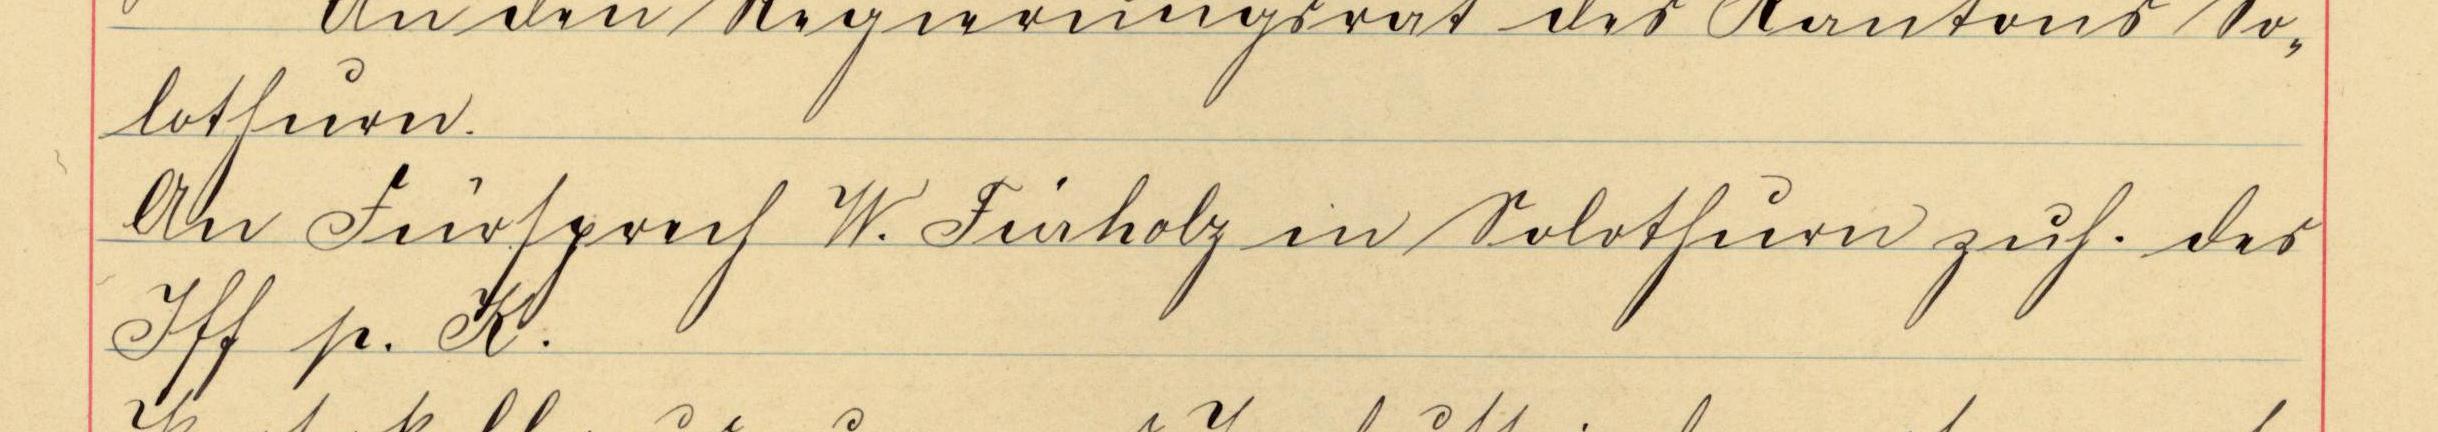 An den Regierungsrat des Kantons So„
lothurn.
An Fürsprech W. Fürholz in Solothurn zuh. des
Iff p. K.